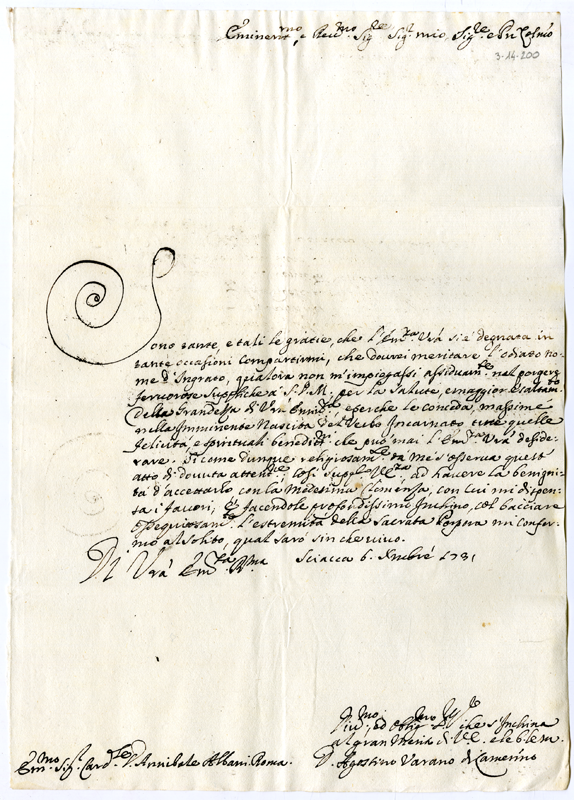 Eminen.mo, e Rev.mo Sig.re Sig.r mio Sig.re e Pn Colmo
3-14-200
Sono tante, e tali le gratie, che l'Em.za Vrã si è degnata in
tante occasioni compartirmi, che dovrei meritare l'odiato no-
me d'Ingrato, qualora non m'impiegassi assiduam.te nel porgere
fervorose suppliche a S.D.M. per la salute, e maggior esaltam.to
della Grandezza di Vrã Emin.za e perche le conceda, massime
nella Imminente Nascita del Verbo Incarnato tutte quelle
felicità, e spirituali benedit.i che può mai l'Em.za Vrã deside-
rare. Si come dunque religiosam.te da me s'osserva quest'
atto di dovuta attent.ne, così suppl. V.Em.za ad havere la benigni-
tà d'accettarlo con la medesima Clemenza, con cui mi dispen-
sa i favori, e facendole profondissimo Inchino, col bacciare
ossequiosam.te l'estremità della Sacrata Porpora mi confer-
mo al solito, qual sarò sin che vivo.
Di Vrã Em.za R.ma Sciacca 6. Xmbrẽ 1731
che s'Inchina
al gran Merito di V.E. e le b. le m.
D. Agostino Varano di Camerino
Em.mo Sig.r Card.le D. Annibale Albani. Roma.